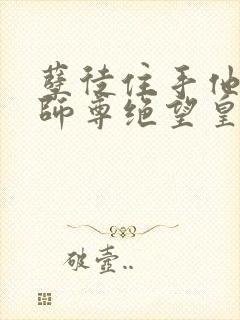 孽徒住手他
师尊绝望皇
破壶..